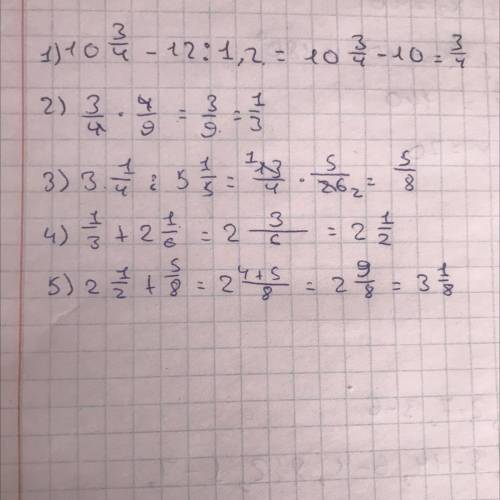 1) 10 3/4 - 12 : 1,2 = 10 3/4 - 10 = 3/4
2) 3/4 · 4/9 = 3/9 = 1/3
3) 3 · 1/4 : 5 1/5 = 1 13/4 · 5/26 2 = 5/8
4) 1/3 + 2 1/6 = 2 3/6 = 2 1/2
5) 2 1/2 + 5/8 = 2 4+5/8 = 2 9/8 = 3 1/8